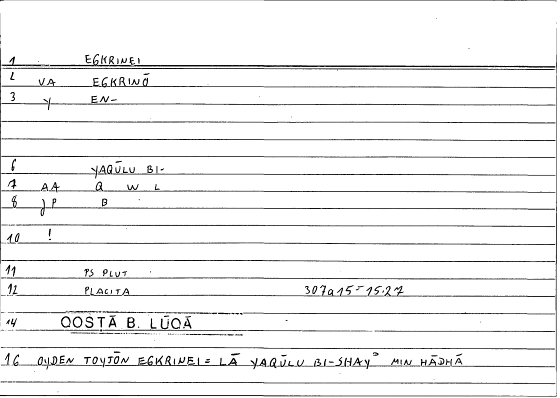 1 EGKRINEI
2 VA EGKRINŌ
3 y EN-
6 YAQŪLU BI-
7 AA Q W L
8 JP B
10 !
11 PS PLUT
12 PLACITA 307a15-15.27
14 QOSTĀ B. LŪQĀ
16 OYDEN TOYTŌN EGKRINEI = LĀ YAQŪLU BI-SHAYʾ MIN HĀDHĀ